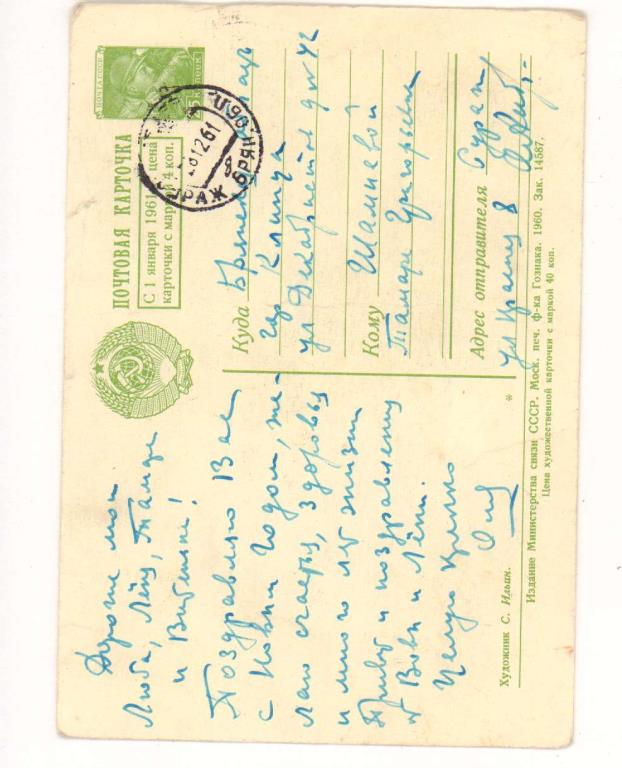 ПОЧТА СССР
ПОЧТОВАЯ КАРТОЧКА
С 1 января 1961 г. цена
карточки с маркой 4 коп.
СУРАЖ БРЯН
61
Дорогие мои
Люба, Лёня, Тамара
и Витенька!
Поздравляю Вас
с Новым Годом, же-
лаю счастья, здоровья
и много лет жизни
Привет и поздравления
от Вовы и Лёни.
Целую крепко
Куда
гор Клинцы
ул Декабристов д № 42
Кому Шамшевой
Тамаре Григорьевне
Адрес отправителя Сураж
ул 8
*
Художник С. Ильин.
Издание Министерства связи СССР. Моск. печ. ф-ка Гознака. 1960. Зак. 14587.
Цена художественной карточки с маркой 40 коп.